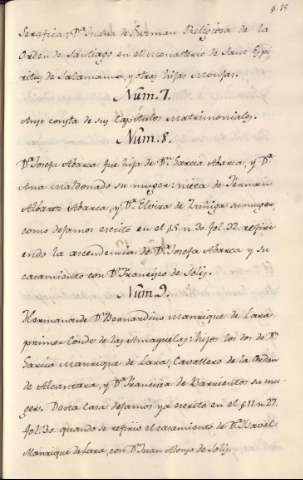 Serafica; Dª Indra de Guzman Religiosa de la
Orden de Santiago en el Monasterio de Santi Espi-
ritus de Salamanca, y otras hijas Monjas.
Num. 7.
Anse consta de sus Capitulos Matrimoniales.
Num. 8.
Dª Josefa Abarca fue hija de Dⁿ Garcia Abarca, y Dª
Ana Maldonado su muger: nieta de Fernan
Albarez Abarca, y Dª Elvira de Zuñiga su muger
como dejamos escrito en el p. 5. n. 30. fol. 32. refiri-
endo la ascendencia de Dª Josefa Abarca y su
casamiento con Dⁿ Francisco de Solis.
Num. 9.
Hermano de Dⁿ Bernardino Manrique de Lara
primer Conde de las Amayuelas: hijos los dos de Dⁿ
Garcia Manrique de Lara, Cavallero de la Orden
de Alcantara, y Dª Francisca de Barrientos su mu-
ger. De esta Casa dejamos ya escrito en el p. 11. n. 27.
fol. 30. quando se refirio el casamiento de Dª Isabel
Manrique de Lara, con Dⁿ Juan Alonso de Solis.